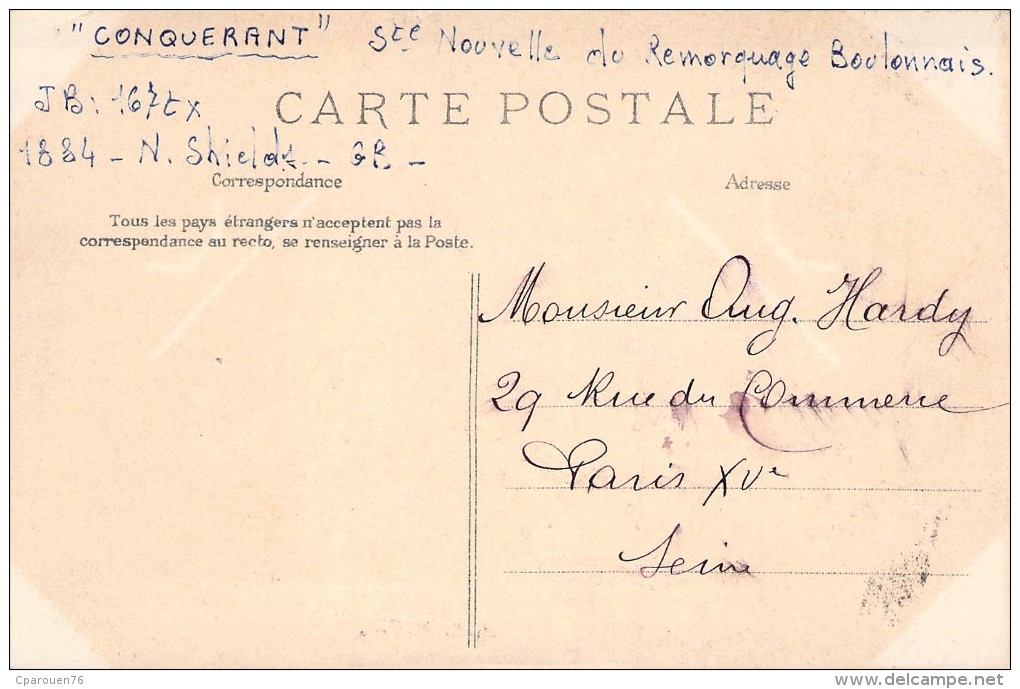 "CONQUERANT" Sté Nouvelle du Remorquage Boulonnais.
JB: 167tx
CARTE POSTALE
1884 - N. Shields - GB -
Correspondance
Adresse
Tous les pays étrangers n'acceptent pas la
correspondance au recto, se renseigner à la Poste.
Monsieur Aug. Hardy
29 Rue du Commerce
Paris XVe
Seine
Cparouen76
delcampe.net